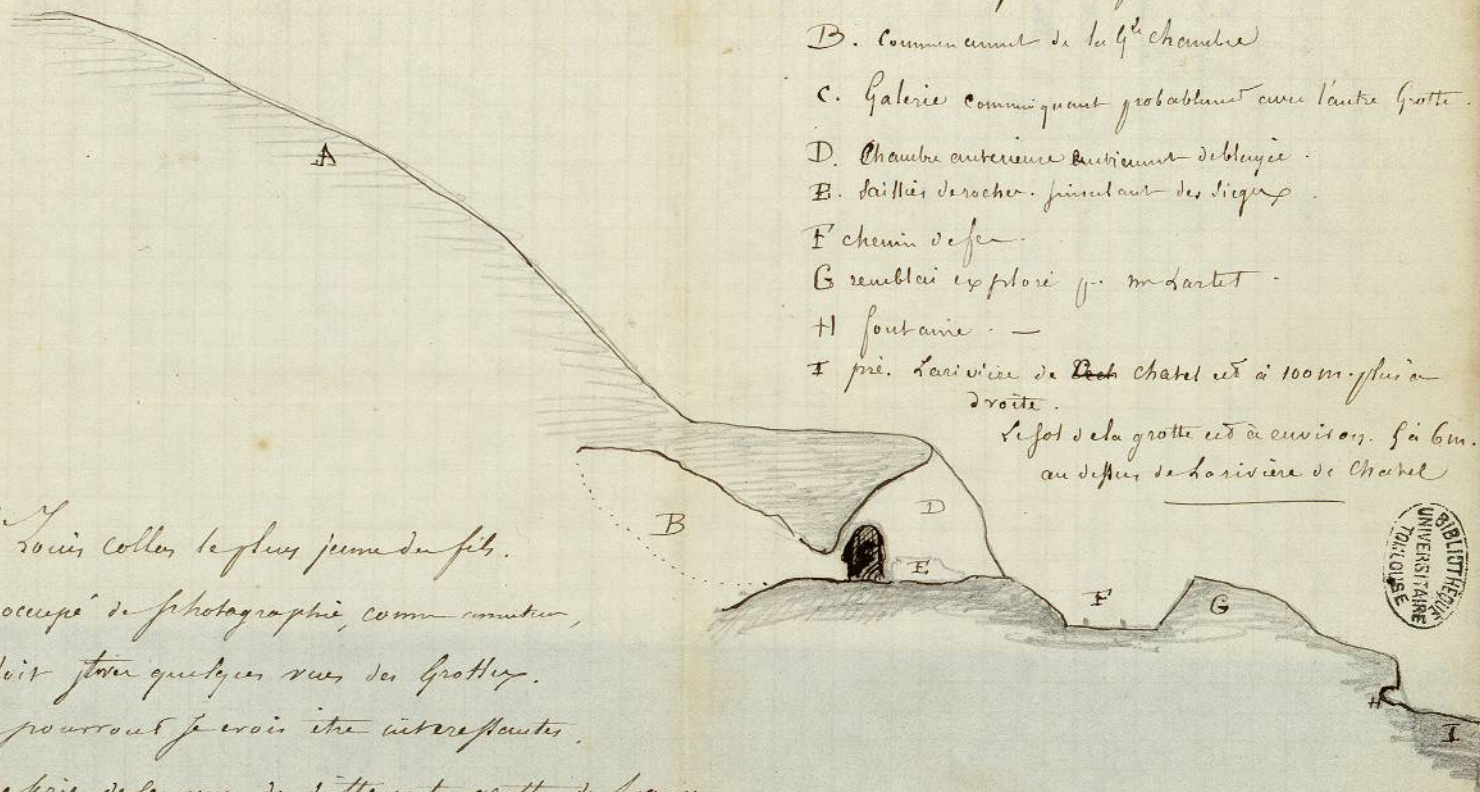 B. Commencement de la Gde chambre
C. Galerie communiquant probablement avec l'autre Grotte.
D. Chambre anterieure entierement deblayée.
E. Saillies de rocher. simulant des sieges.
F chemin de fer.
G remblai exploré p. mr Lartet.
H fontaine. —
I pré. La rivière de chatel est à 100 m. plus à
droite.
Le sol de la grotte est à environ. 5 à 6 m.
au dessus de La rivière de Chatel
A
B
D
E
F
G
H
I
BIBLIOTHÈQUE
UNIVERSITAIRE
TOULOUSE
Louis le plus jeune des fils.
occupé de photographie, comme amateur,
quelques vues des Grottes.
pourront je crois être interessantes.